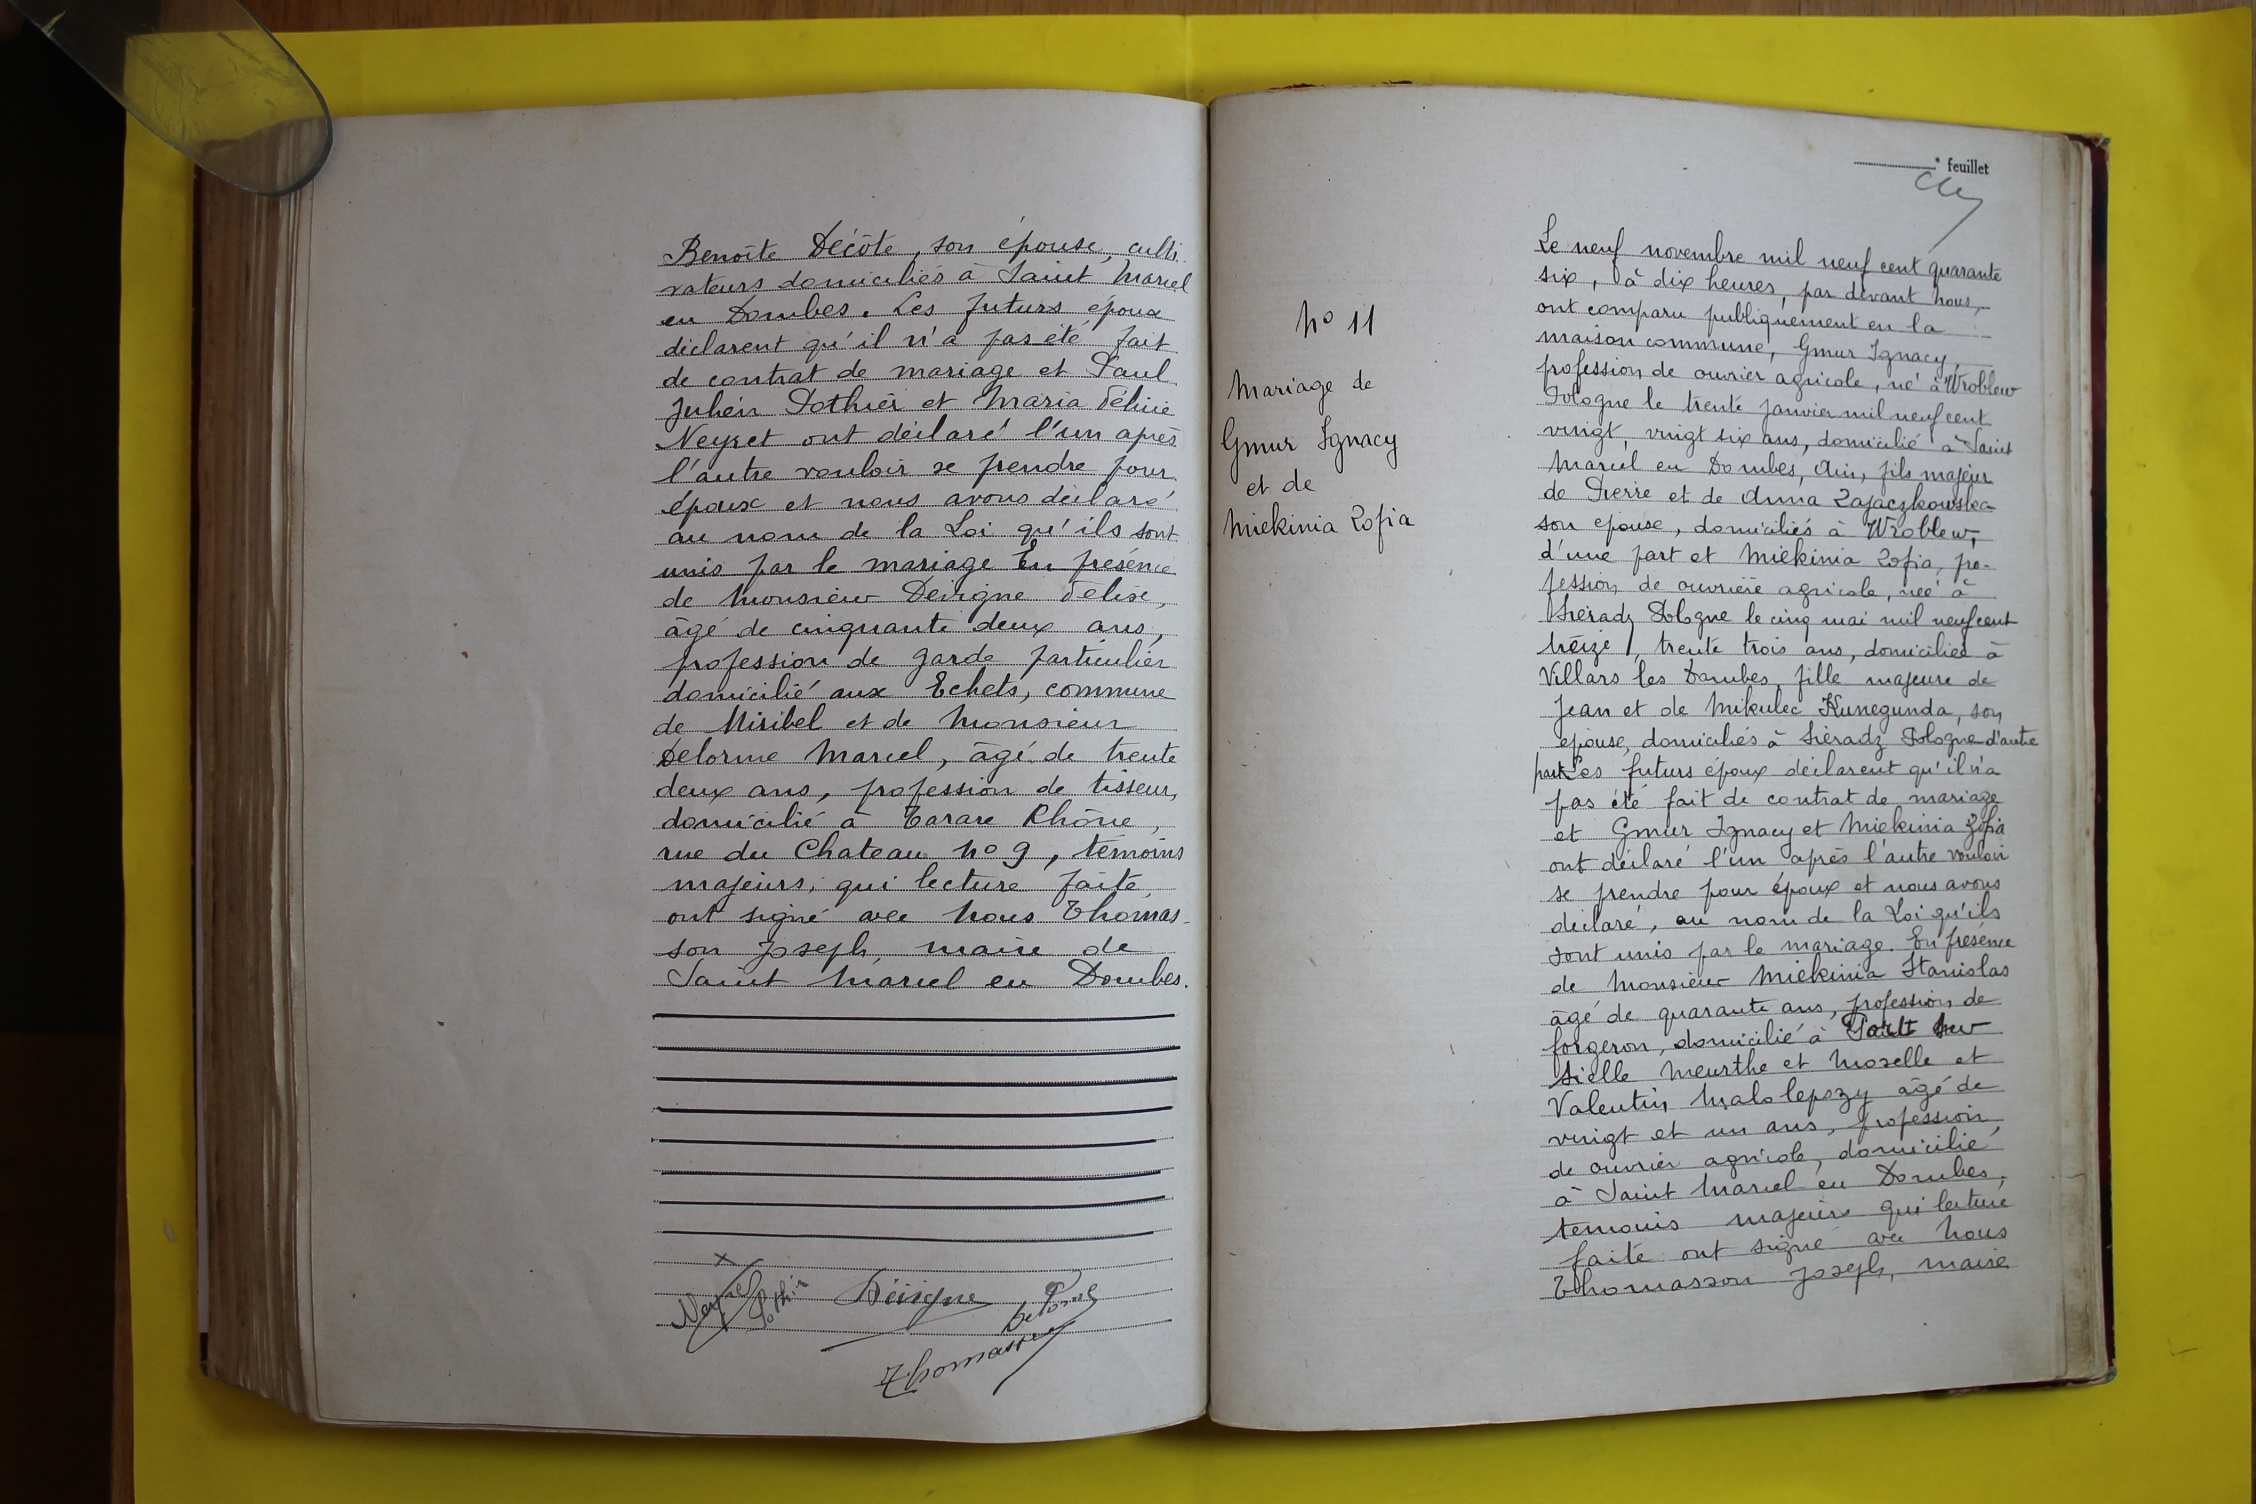 Benoîte Décôte, son épouse, culti
vateurs domiciliés à Saint Marcel
en Dombes. Les futurs époux
déclarent qu'il n'a pas été fait
de contrat de mariage et Paul
Julien Pothier et Maria Félicie
Neyret ont déclaré l'un après
l'autre vouloir se prendre pour
époux et nous avons déclaré
au nom de la Loi qu'ils sont
unis par le mariage En présence
de Monsieur Dévigne Félise,
âgé de cinquante deux ans,
profession de garde particulier
domicilié aux Echets, commune
de Miribel et de Monsieur
Delorme Marcel, âgé de trente
deux ans, profession de tisseur,
domicilié à Tarare Rhône,
rue du Chateau No 9, témoins
majeurs, qui lecture faite
ont signé avec Nous Thomas-
son Joseph, maire de
Saint Marcel en Dombes.
Neyret Pothier Dévigne Delorme
Thomasson
feuillet
No 11
Mariage de
Gmur Ignacy
et de
Miekinia Zofia
Le neuf novembre mil neuf cent quarante
six, à dix heures, par devant nous,
ont comparu publiquement en la
maison commune, Gmur Ignacy,
profession de ouvrier agricole, né à Wroblew
Pologne le trente janvier mil neuf cent
vingt, vingt six ans, domicilié à Saint
Marcel en Dombes, Ain, fils majeur
de Pierre et de Anna Zajaczkowska
son epouse, domiciliés à Wroblew,
d'une part et Miekinia Zofia, pro-
fession de ouvrière agricole, née à
Siéradz Pologne le cinq mai mil neuf cent
treize, trente trois ans, domiciliée à
Villars les Dombes, fille majeure de
Jean et de Mikulec Kunegunda, son
epouse, domiciliés à Siéradz Pologne d'autre
part Les futurs époux déclarent qu'il n'a
pas été fait de contrat de mariage
et Gmur Ignacy et Miekinia Zofia
ont déclaré l'un après l'autre vouloir
se prendre pour époux et nous avons
déclaré, au nom de la Loi qu'ils
sont unis par le mariage. En présence
de Monsieur Miekinia Stanislas
âgé de quarante ans, profession de
forgeron, domicilié à
Meurthe et Moselle et
Valentin Malolepszy âgé de
vingt et un ans, profession
de ouvrier agricole, domicilié
à Saint Marcel en Dombes,
témoins majeurs qui lecture
faite ont signé avec Nous
Thomasson Joseph, maire